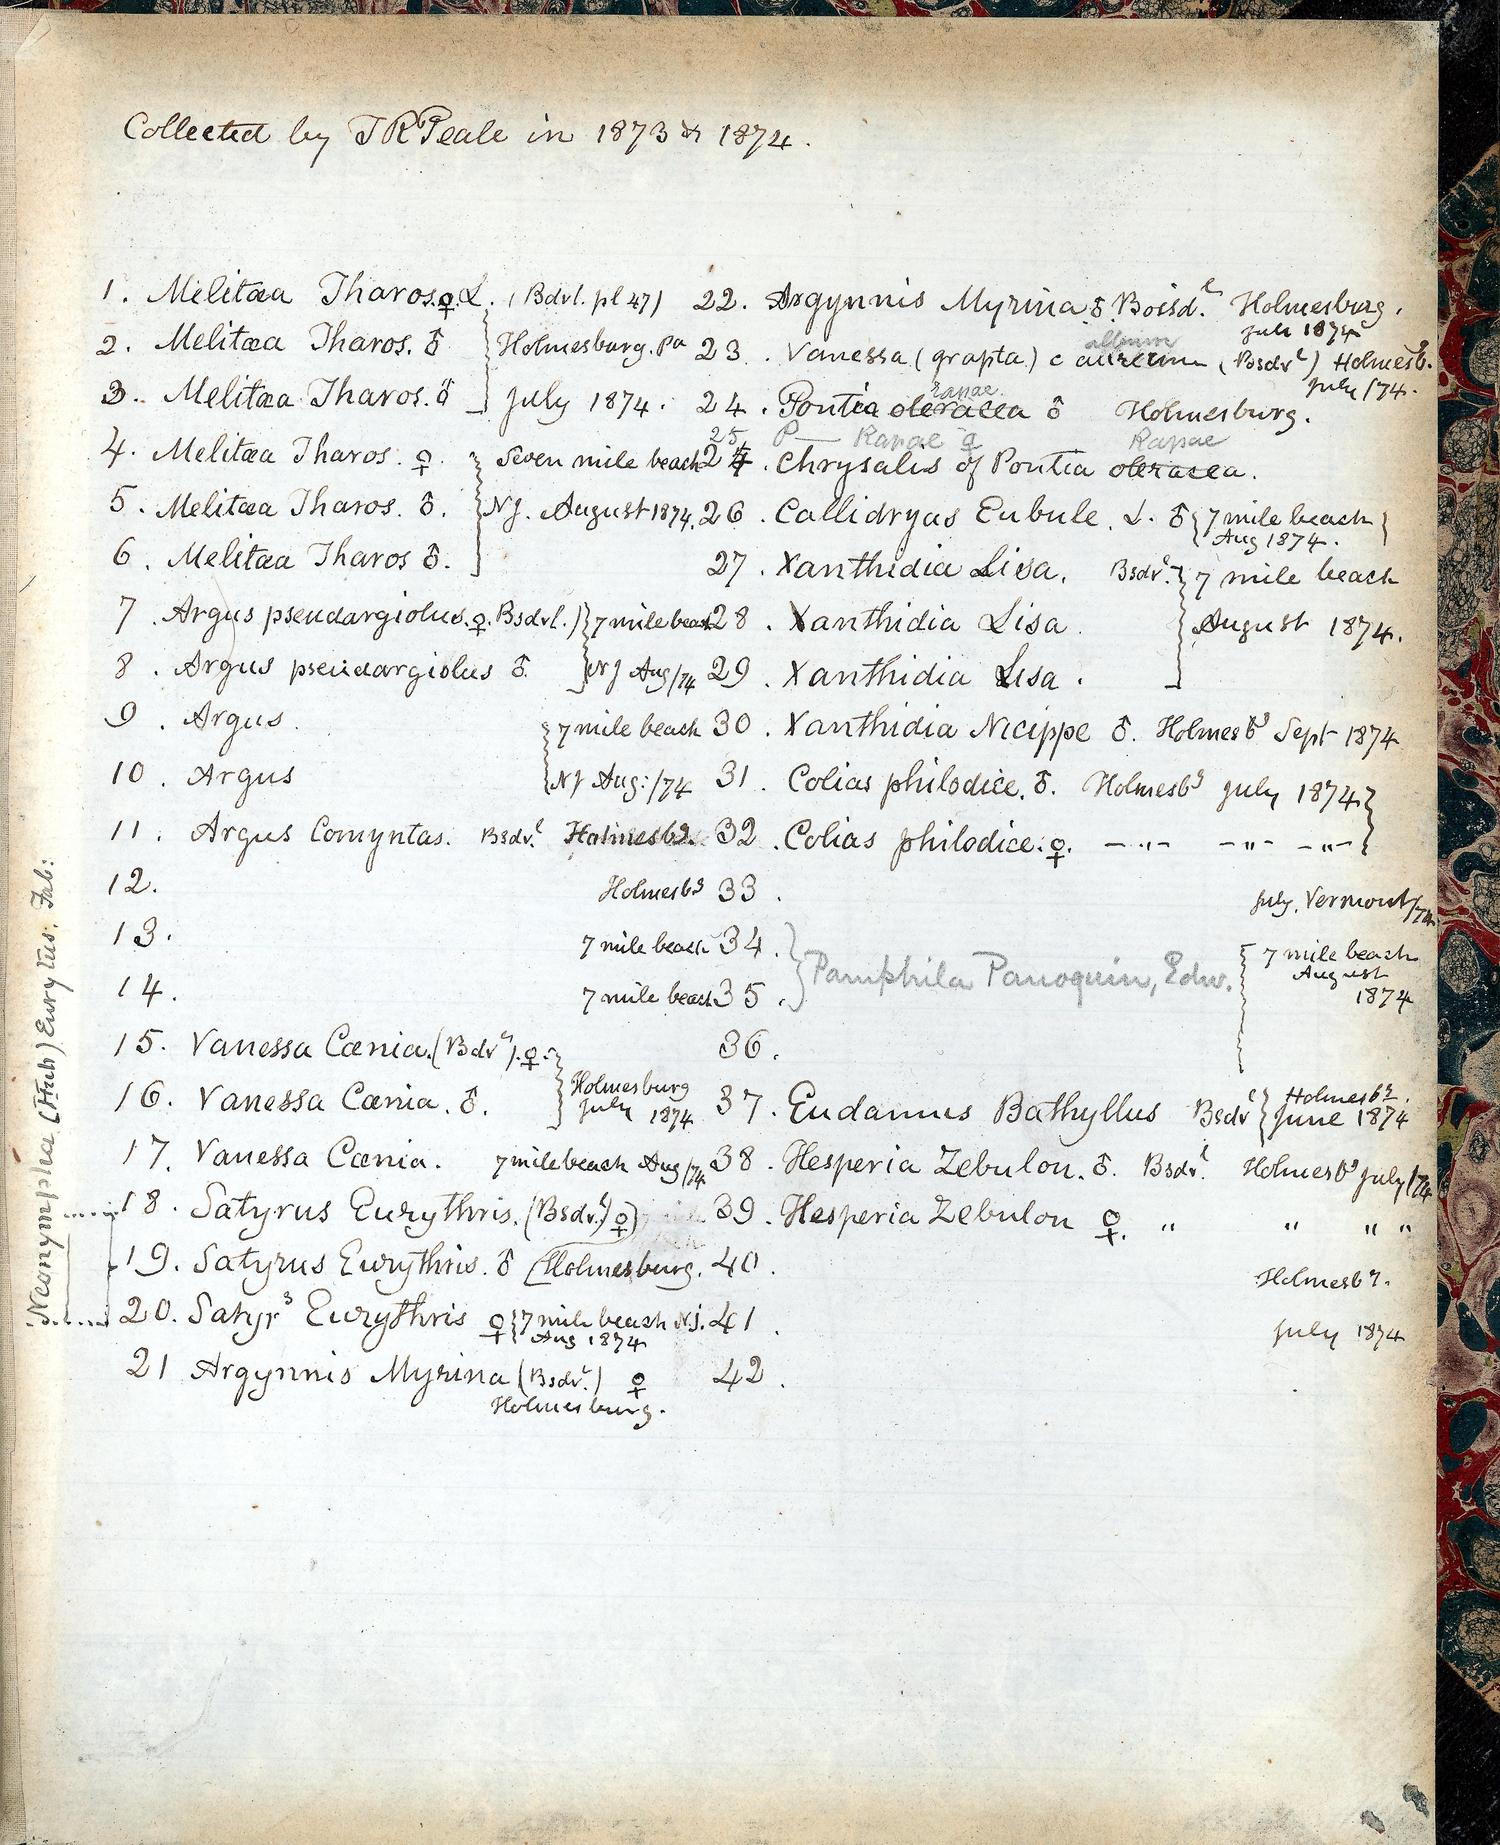 Collected by TR Peale in 1873 & 1874.
1. Melitæa Tharos. ♀ L. (Bdvl. pl 47)
2. Melitæa Tharos. ♂ Holmesburg. Pa
3. Melitæa Tharos. ♂ July 1874.
4. Melitæa Tharos. ♀. Seven mile beach
5. Melitæa Tharos. ♂. NJ. August 1874.
6. Melitæa Tharos ♂.
7. Argus pseudargiolus. ♀. Bsdvl.) 7 mile beach
8. Argus pseudargiolus ♂. NJ Aug/74
9. Argus. 7 mile beach
10. Argus NJ Aug:/74
11. Argus Comyntas. Bsdv.l Holmesbg.
12. Holmesbg
13. 7 mile beach
14. 7 mile beach
15. Vanessa Cænia. (Bdvl). ♀.
Holmesburg
16. Vanessa Cænia. ♂. July 1874
17. Vanessa Cænia. 7 mile beach Aug/74
18. Satyrus Eurythris. (Bsdv.l) ♀
19. Satyrus Eurythris. ♂ (Holmesburg.
20. Satyrs Eurythris ♀ 7 mile beach N.J.
Aug 1874
21 Argynnis Myrina (Bsdv.l) ♀
Holmesburg.
Neonympha (Hub) Eurytus. Fab:
22. Argynnis Myrina ♂. Boisd.l Holmesburg.
July 1874
album
23. Vanessa (grapta) c aureum (Bsdvl) Holmesb.g
July /74.
rapae
24. Pontia oleracea ♂ Holmesburg.
25. P— Rapae ♀ Rapae
24. Chrysalis of Pontia oleracea.
26. Callidryas Eubule. L. ♂ 7 mile beach
Aug 1874.
27. Xanthidia Lisa. Bsdv.l 7 mile beach
28. Xanthidia Lisa. August 1874.
29. Xanthidia Lisa.
30. Xanthidia Nicippe ♂. Holmesbg Sept 1874
31. Colias philodice. ♂. Holmesbg July 1874
32. Colias philodice. ♀. — " — — " — — " —
33. July. Vermont/74.
34. 7 mile beach
Pamphila Panoquin, Edw. August
35. 1874
36.
37. Eudamus Bathyllus Bsdvl Holmesbg.
June 1874
38. Hesperia Zebulon. ♂. Bsdv.l Holmesbg July/74
39. Hesperia Zebulon ♀. " " " "
40. Holmesbg.
41. July 1874
42.